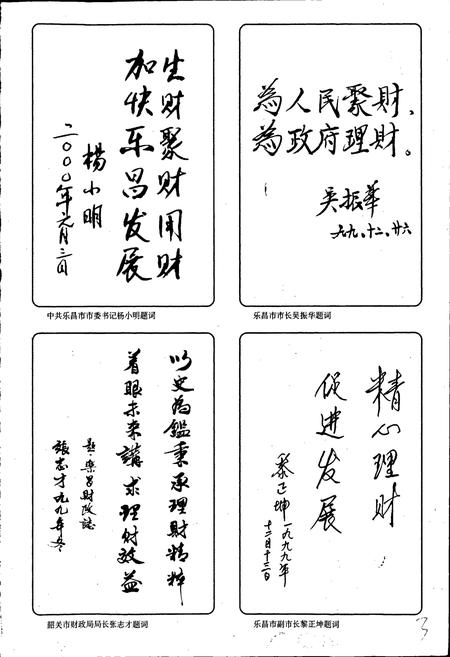 生财聚财用财
加快乐昌发展
杨小明
二〇〇〇年元月三日
中共乐昌市市委书记杨小明题词
為人民聚財、
為政府理財。
吴振华
九九.十二.廿六
乐昌市市长吴振华题词
以史為鑑秉承理財精粹
着眼未来講求理财效益
題樂昌財政誌
張志才九九年冬
韶关市财政局局长张志才题词
精心理财
促进发展
黎正坤一九九九年
十二月十三日
乐昌市副市长黎正坤题词
3